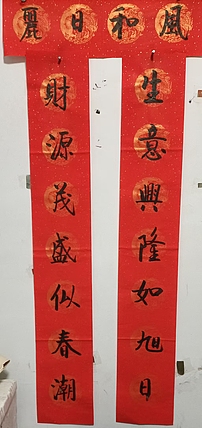 風和日麗
生意興隆如旭日
財源茂盛似春潮